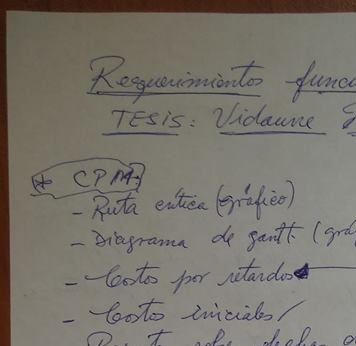 Requerimientos func
TESIS: Vidaurre
* CPM:
- Ruta crítica (gráfico)
- Diagrama de gantt (grá
- Costos por retardos
- Costos iniciales